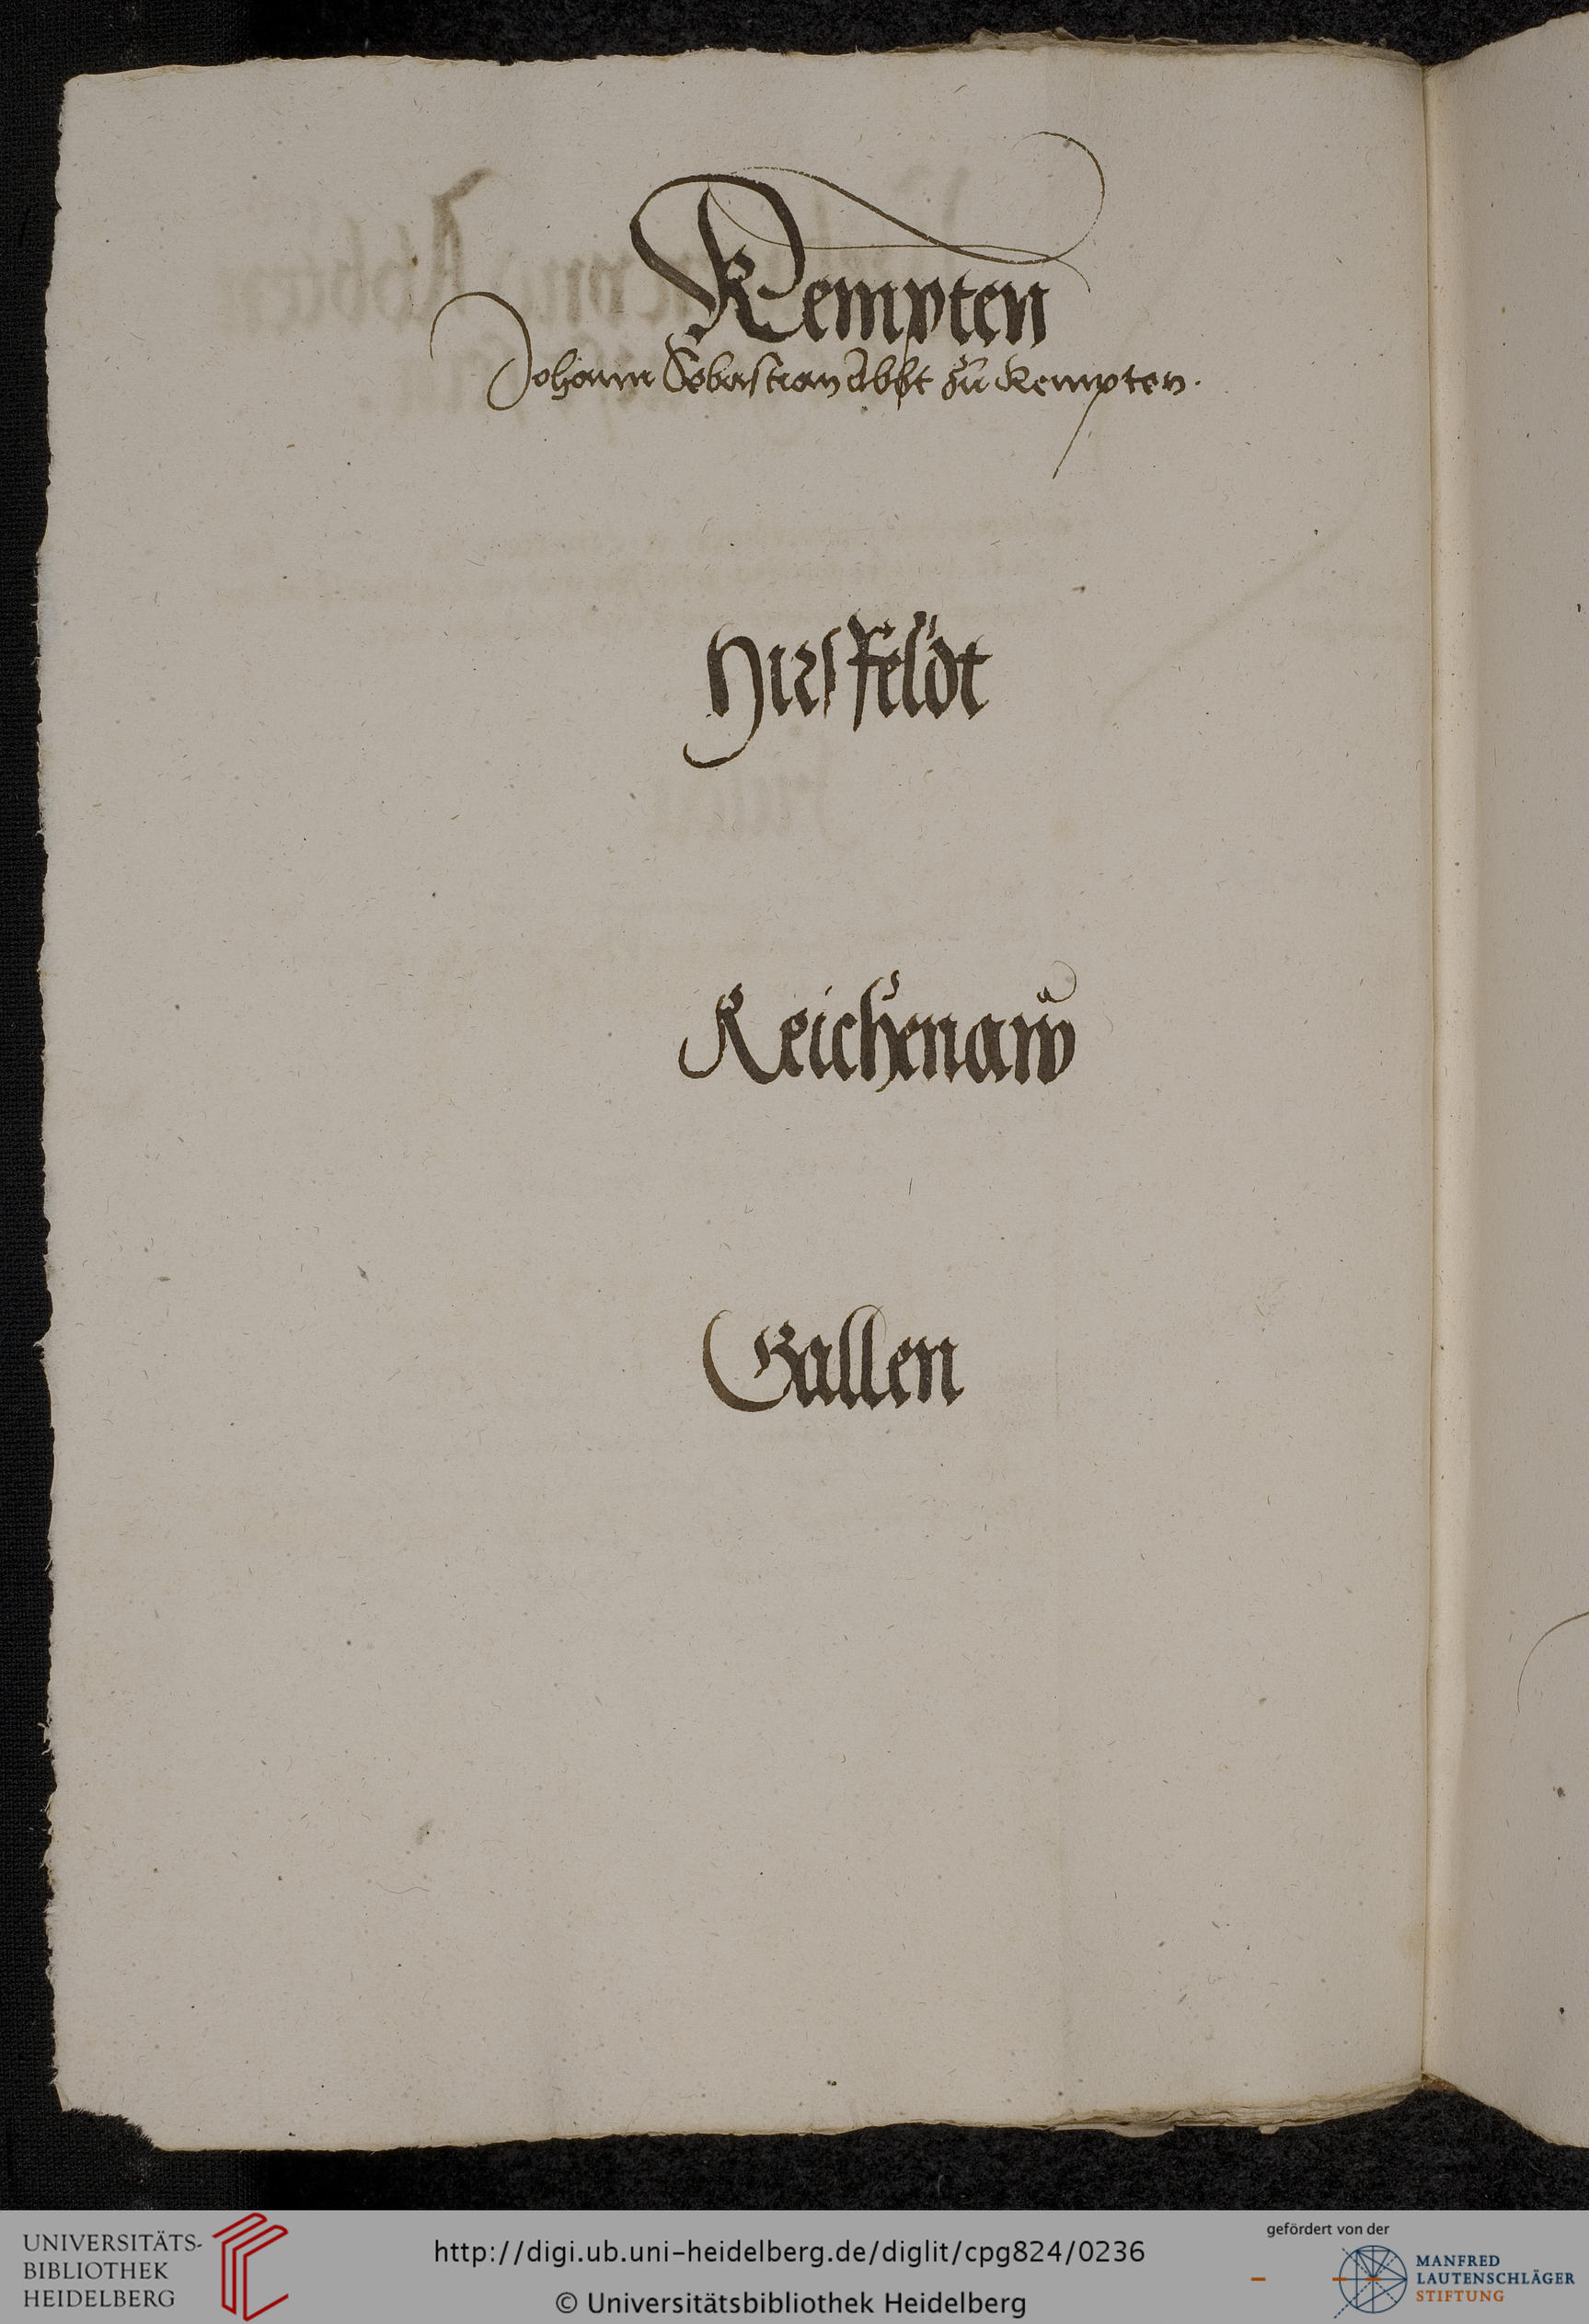 Kempten
Johann Sebastian Abbt zu Kempten.
Hirsfeldt
Reichenaw
Gallen
UNIVERSITÄTS-
BIBLIOTHEK
HEIDELBERG
http://digi.ub.uni-heidelberg.de/diglit/cpg824/0236
© Universitätsbibliothek Heidelberg
gefördert von der
MANFRED
LAUTENSCHLÄGER
STIFTUNG